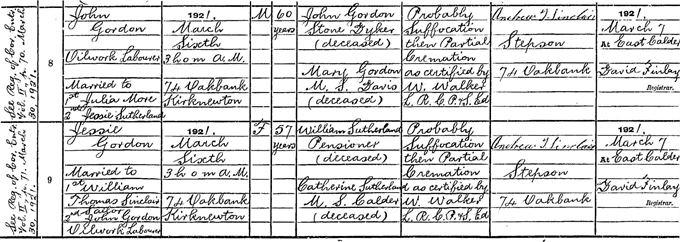 See Reg. of Cor. Ents.
Vol. I, p. 70. March
30, 1921.
8
John
Gordon
Oilwork Labourer
Married to
1st Julia More
2nd Jessie Sutherland
1921.
March
Sixth
3 h 0 m A.M.
74 Oakbank
Kirknewton
M
60
years
John Gordon
Stone Dyker
(deceased)
Mary Gordon
M. S. Davis
(deceased)
Probably
Suffocation
then Partial
Cremation
as certified by
W. Walker
L.R.C.P.&S. Ed
Andrew T Sinclair
Stepson
74 Oakbank
1921.
March 7
At East Calder
David Finlay
Registrar.
See Reg. of Cor. Ents.
Vol. I, p. 71. March
30, 1921.
9
Jessie
Gordon
Married to
1st William
Thomas Sinclair
Sailor
2nd John Gordon
Oilwork Labourer
1921.
March
Sixth
3 h 0 m A.M.
74 Oakbank
Kirknewton
F
57
years
William Sutherland
Pensioner
(deceased)
Catherine Sutherland
M. S. Calder
(deceased)
Probably
Suffocation
then Partial
Cremation
as certified by
W. Walker
L.R.C.P.&S. Ed
Andrew T Sinclair
Stepson
74 Oakbank
1921.
March 7
At East Calder
David Finlay
Registrar.